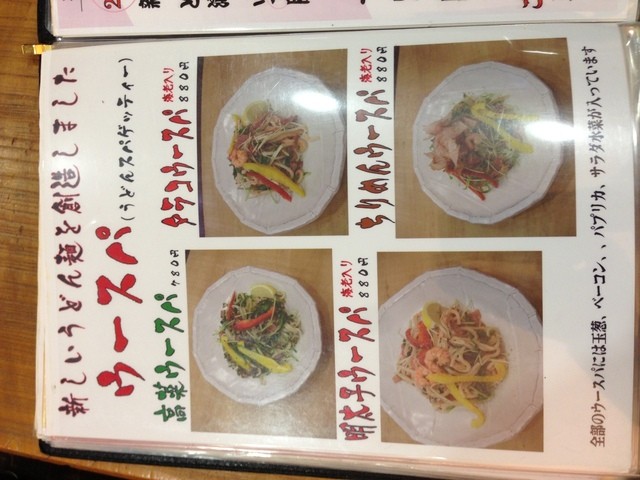 新しいうどん麺を創造しました
ウースパ(うどんスパゲッティー)
高菜ウースパ 780円
タラコウースパ 海老入り 880円
明太子ウースパ 海老入り 880円
ちりめんウースパ 海老入り 880円
全部のウースパには玉葱、ベーコン、、パプリカ、サラダ水菜が入っています